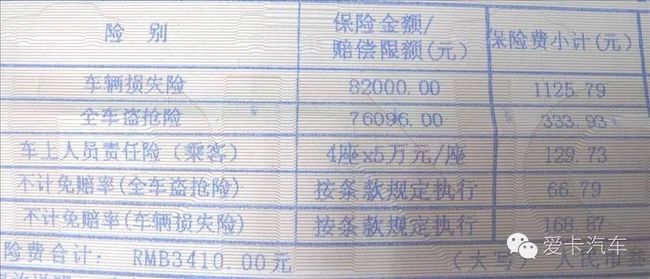 险 别 保险金额/赔偿限额(元) 保险费小计(元)
车辆损失险 82000.00 1125.79
全车盗抢险 76096.00 333.93
车上人员责任险(乘客) 4座x5万元/座 129.73
不计免赔率(全车盗抢险) 按条款规定执行 66.79
不计免赔率(车辆损失险) 按条款规定执行 168.87
险费合计: RMB3410.00元 (大写)
爱卡汽车